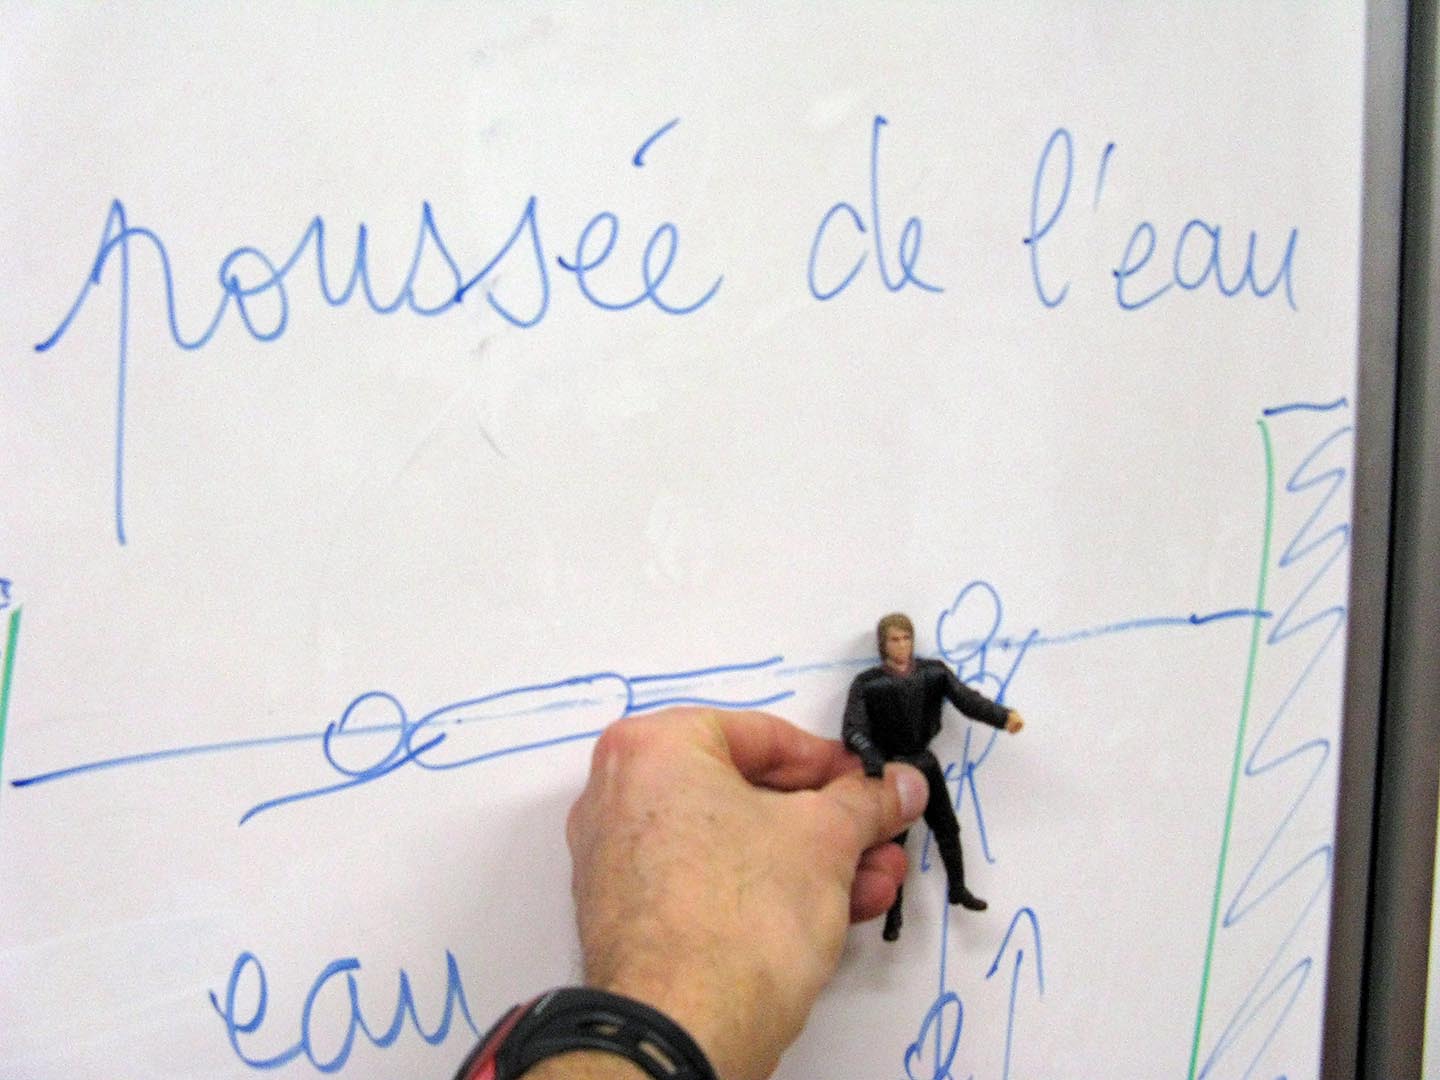 poussée de l'eau
eau